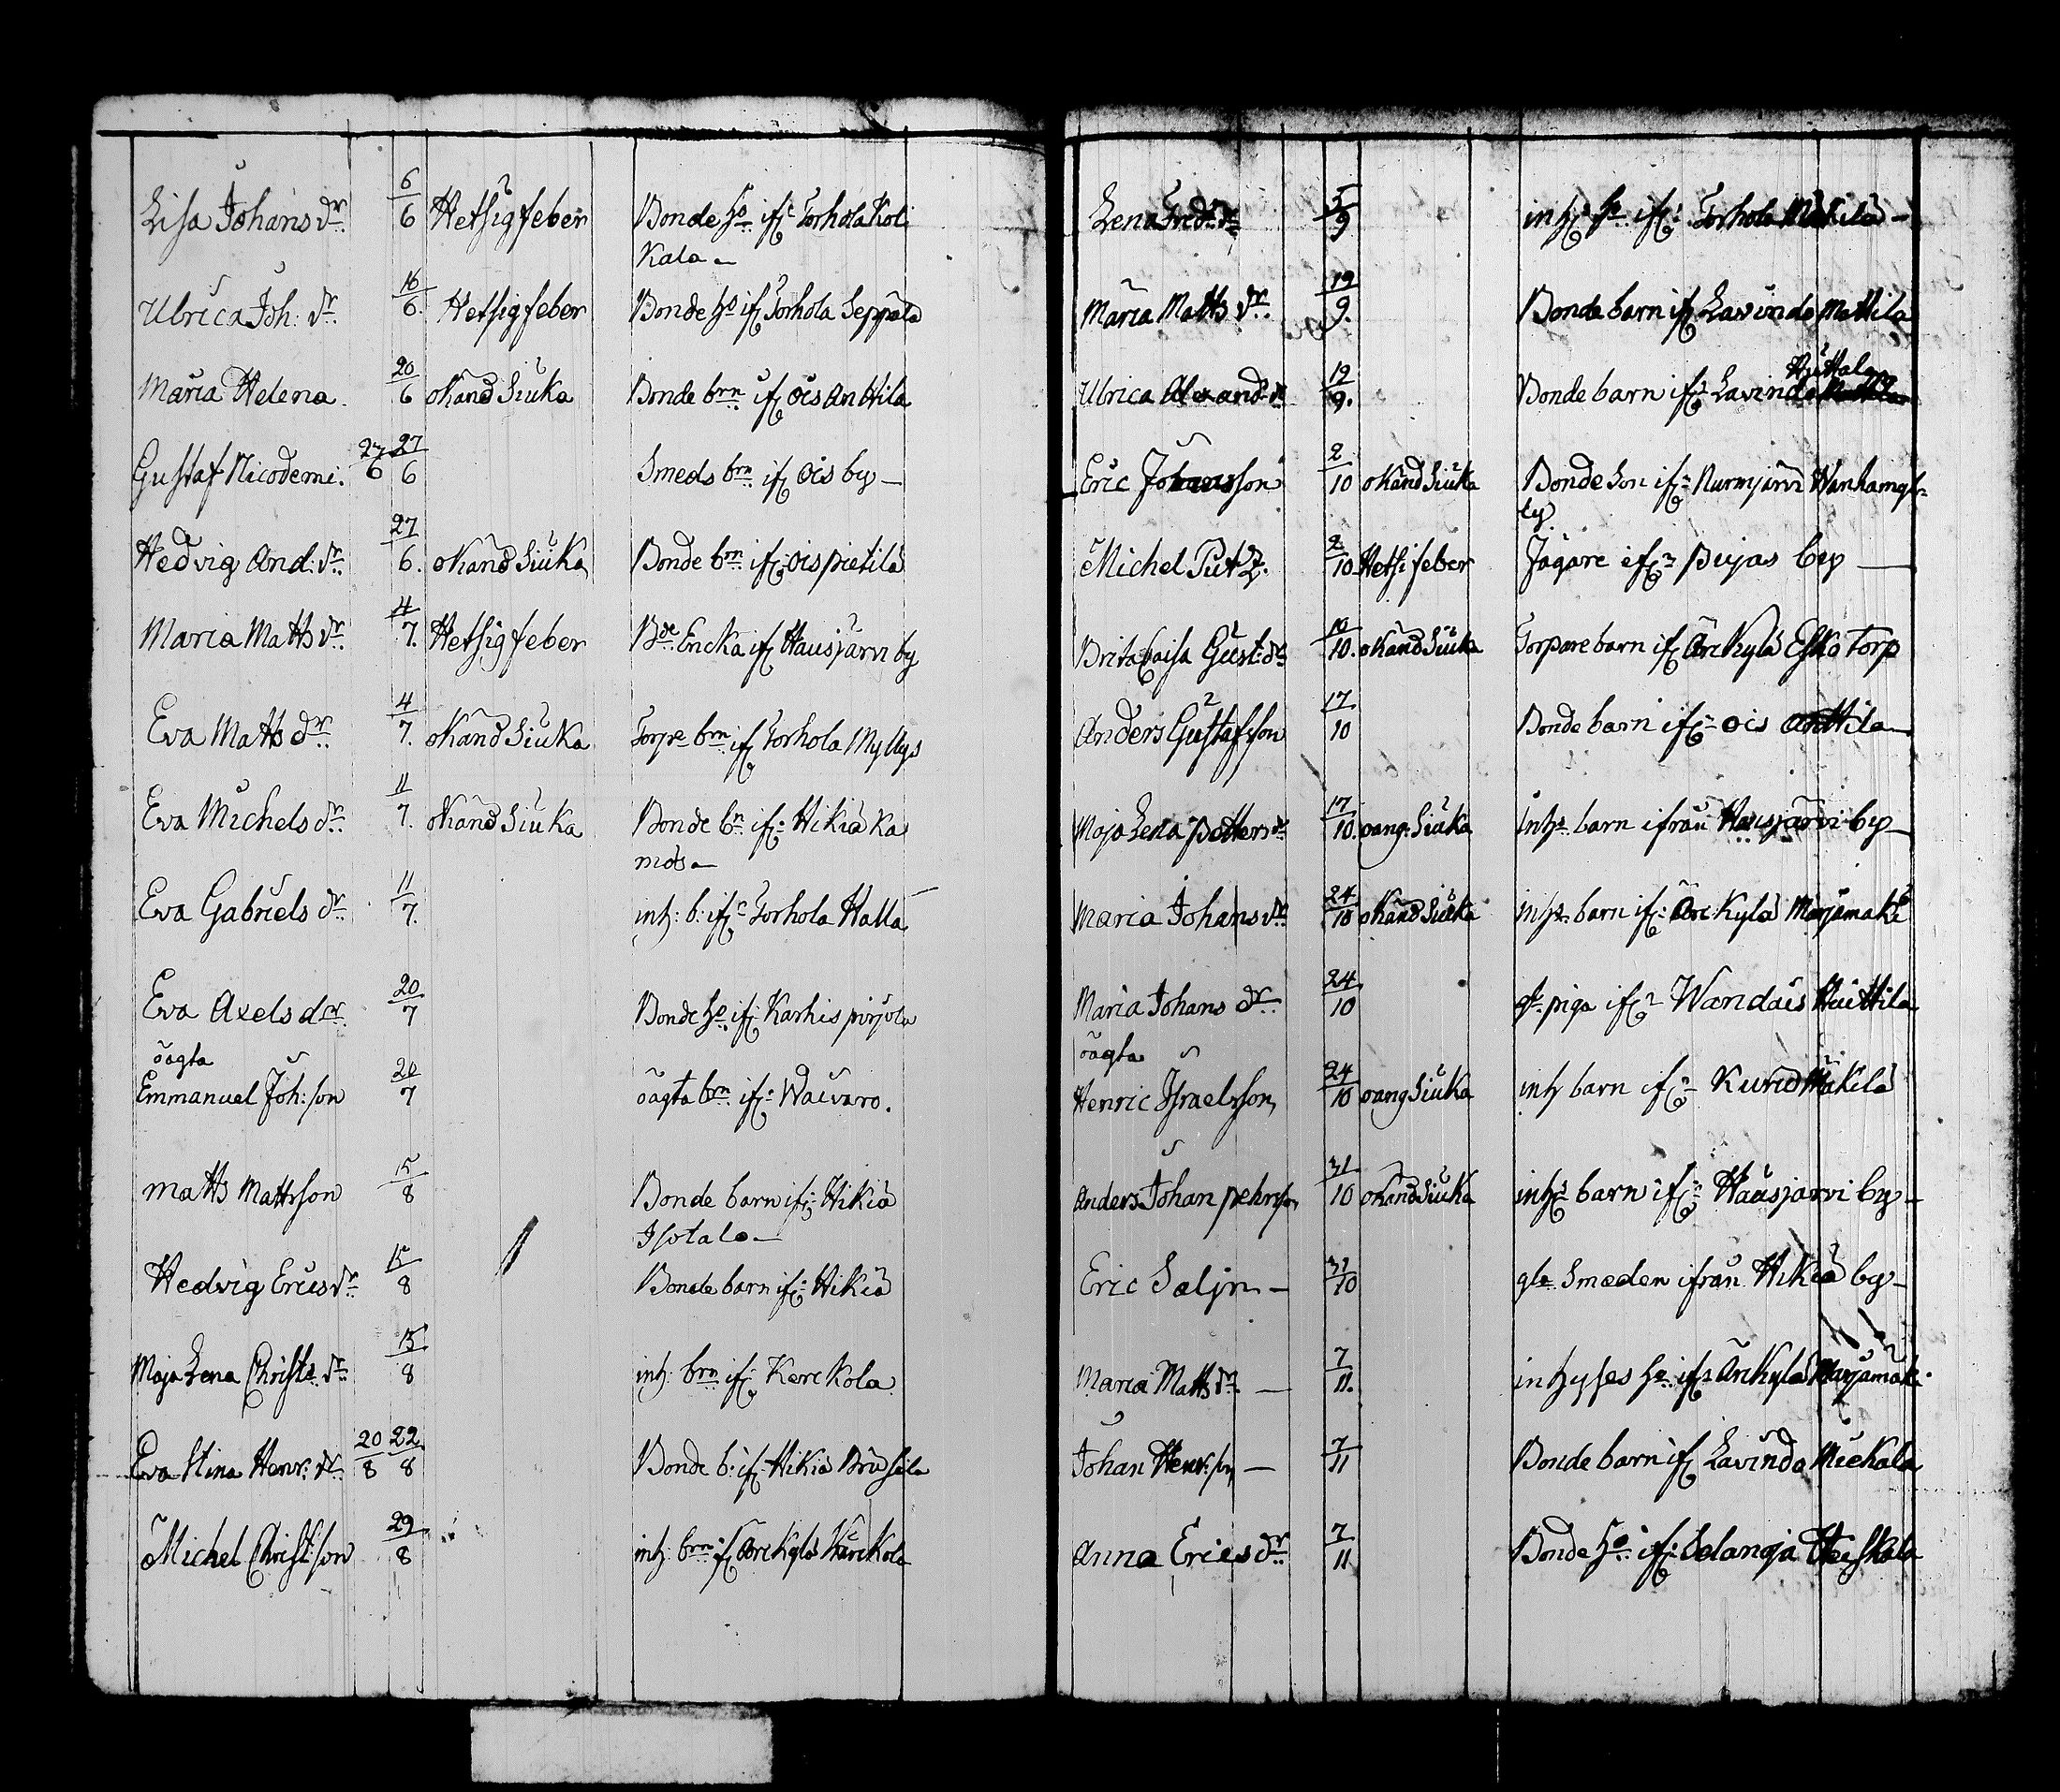 Lisa Johans dr. 6/6 Hetsigfeber Bonde ho ifr Torhola Koti
Kala -
Ulrica Joh: dr. 16/6. Hetsigfeber Bonde ho ifr Torhola Seppälä
Maria Helena. 20/6 okänd Siuka Bonde brn ifr Ois Anttila
Gustaf Nicodemi. 27/6 27/6 Smeds brn ifr Ois by -
Hedvig And: dr. 27/6. okänd Siuka Bonde brn ifr Ois pietilä
Maria Matts dr. 4/7. Hetsigfeber Bde Encka ifr Hausjärvi by
Eva Matts dr. 4/7. okänd Siuka Torpe brn ifr Torhola Myllys
Eva Michels dr. 11/7. okänd Siuka Bonde bn ifr: Hikiä Ka
Eva Gabriels dr. 11/7. inh: b: ifr Torhola Halla
Eva Axels dr. 20/7 Bonde ho ifr: Karhis pirjola
öägta
Emmanuel Joh: son 20/7 öägta brn ifr: Waivaro.
Matts Mattsson 15/8 Bonde barn ifr: Hikiä
Isotalo -
Hedvig Erics dr. 15/8 Bonde barn ifr: Hikiä
Maja Lena Christs dr. 15/8 inh: brn ifr: Kerckola
Eva Stina Henr: dr. 20/8 22/8 Bonde b: ifr: Hikiä
Michel Christ: son 29/8 inh: brn ifr Örckylä Kärckola
Lena Fred: dr 5/9 inh: ho ifr: Torhola Mäkilä -
Maria Matts dr. 19/9. Bonde barn ifr Lavindo Mattila
Huttala
Ulrica Alexand: dr 19/9. Bonde barn ifr: Lavindo
Eric Johansson 2/10 okänd Siuka Bonde Son ifr: Nurmijärvi
by
Michel Putz. 2/10 Hetsi feber Jägare ifr: Pujas by -
Brita Caisa Gust: dr 10/10. okänd Siuka Torpare barn ifr Örckylä Esko Torp
Anders Gustafsson 17/10 Bonde barn ifr: Ois Anttila -
Maja Lena Petters dr 17/10. oang: Siuka inhs barn ifrån Hausjärvi by -
Maria Johans dr 24/10 okänd Siuka inhs barn ifr: Örckylä Marjamäki
Maria Johans dr. 24/10 gl. piga ifr: Wandais Huittila
öägta
Henric Israelsson 24/10 oang Siuka inh barn ifr: Kurid Mäkilä
Anders Johan pehrson 31/10 okänd Siuka inhs barn ifr: Hausjärvi by -
Eric Saljn - 31/10 gla Smeden ifrån Hikiä by -
Maria Matts dr. - 7/11. inhyses ho ifr: Örckylä Marjamäki.
Johan Henr: son - 7/11 Bonde barn ifr Lavindo Mickala
Anna Erics dr. 7/11 Bonde ho ifr: Selänoja Heikkola